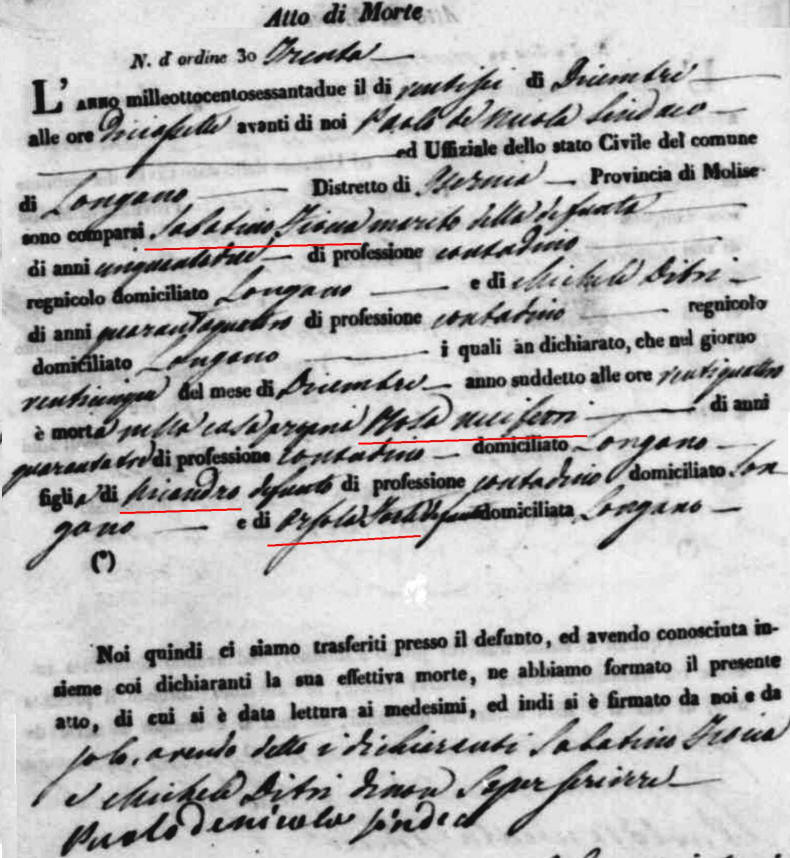 Atto di Morte
N. d'ordine 30 Trenta
L'ANNO milleottocentosessantadue il dì ventisei di Dicembre
alle ore diciasette avanti di noi Paolo de Nicola Sindaco
ed Uffiziale dello stato Civile del comune
di Longano Distretto di Isernia Provincia di Molise
sono comparsi Sabatino marito della defunta
di anni cinquantadue di professione contadino
regnicolo domiciliato Longano e di Michele Ditri
di anni quarantaquattro di professione contadino regnicolo
domiciliato Longano i quali àn dichiarato, che nel giorno
venticinque del mese di Dicembre anno suddetto alle ore ventiquattro
è morta nella casa propria Rosa di anni
quarantatre di professione contadino domiciliato Longano
figlia di Nicandro defunto di professione contadino domiciliato Lon
gano e di Orsola domiciliata Longano
(*)
Noi quindi ci siamo trasferiti presso il defunto, ed avendo conosciuta in-
sieme coi dichiaranti la sua effettiva morte, ne abbiamo formato il presente
atto, di cui si è data lettura ai medesimi, ed indi si è firmato da noi e da
solo, avendo detto i dichiaranti Sabatino
e Michele Ditri di non saper scrivere
Paolo de Nicola Sindaco